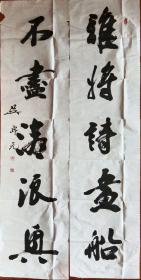 誰將詩畫船
不盡滄浪興